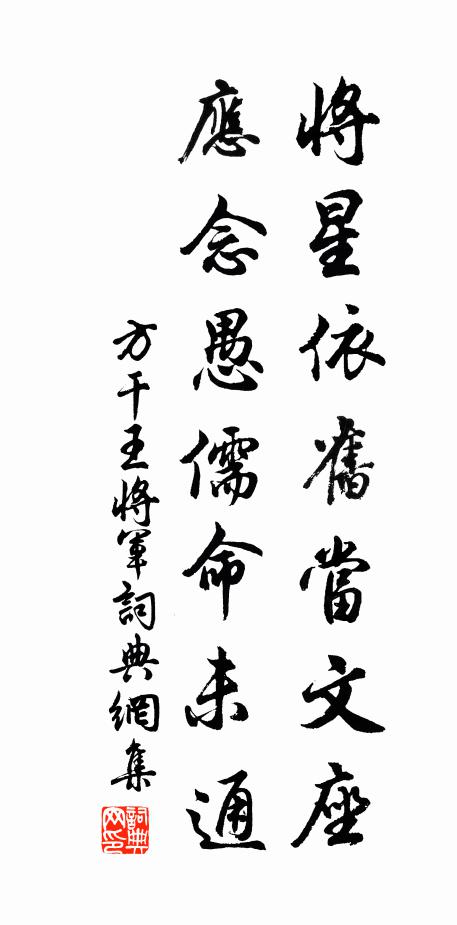 將星依舊當文座
應念愚儒命未通
方干王將軍詞典網集
詞典網印